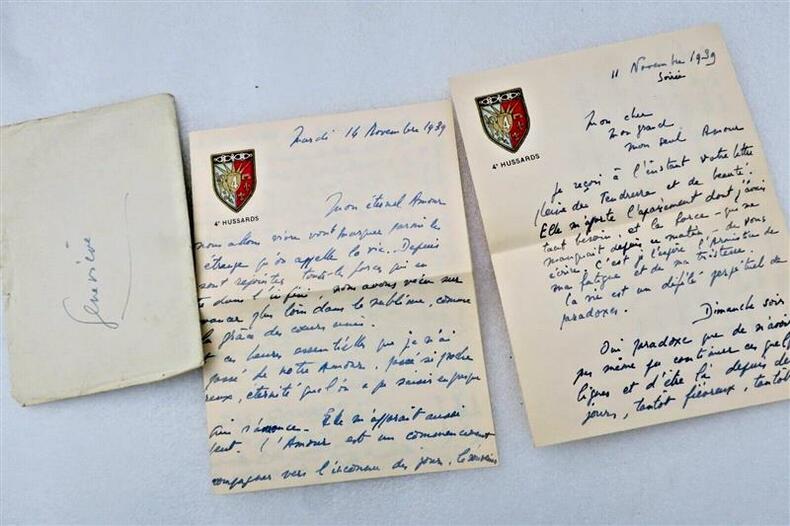 Geneviève
Mardi 14 Novembre 1939
4e HUSSARDS
Mon éternel Amour
nous allons vivre vont marquer parmi les
étrange qu'on appelle la vie.. Depuis
sont rejointes toutes les forces qui en
dans l'infini, nous avons vécu sur
plus loin dans le sublime, comme
la grâce des cœurs unis.
ces heures essentielles que je n'ai
passé de notre Amour, passé si proche
éternité que l'on a pu saisir en presque
s'annonce. Elle m'apparaît aussi
L'Amour est un commencement
compagner vers l'inconnu des jours, le
11 Novembre 1939
Soirée
4e HUSSARDS
Mon cher
Mon grand
Mon seul Amour
Je reçois à l'instant votre lettre
pleine de Tendresse et de beauté.
Elle m'apporte l'apaisement dont j'avais
tant besoin, et la force - qui me
manquait depuis ce matin - de vous
écrire. C'est je l'espère l'armistice de
ma fatigue et de ma tristesse.
La vie est un défilé perpétuel de
paradoxes.
Dimanche soir
Oui paradoxe que de n'avoir
pas même pu continuer ces quelques
lignes et d'être là depuis des
jours, tantôt fiévreux, tantôt